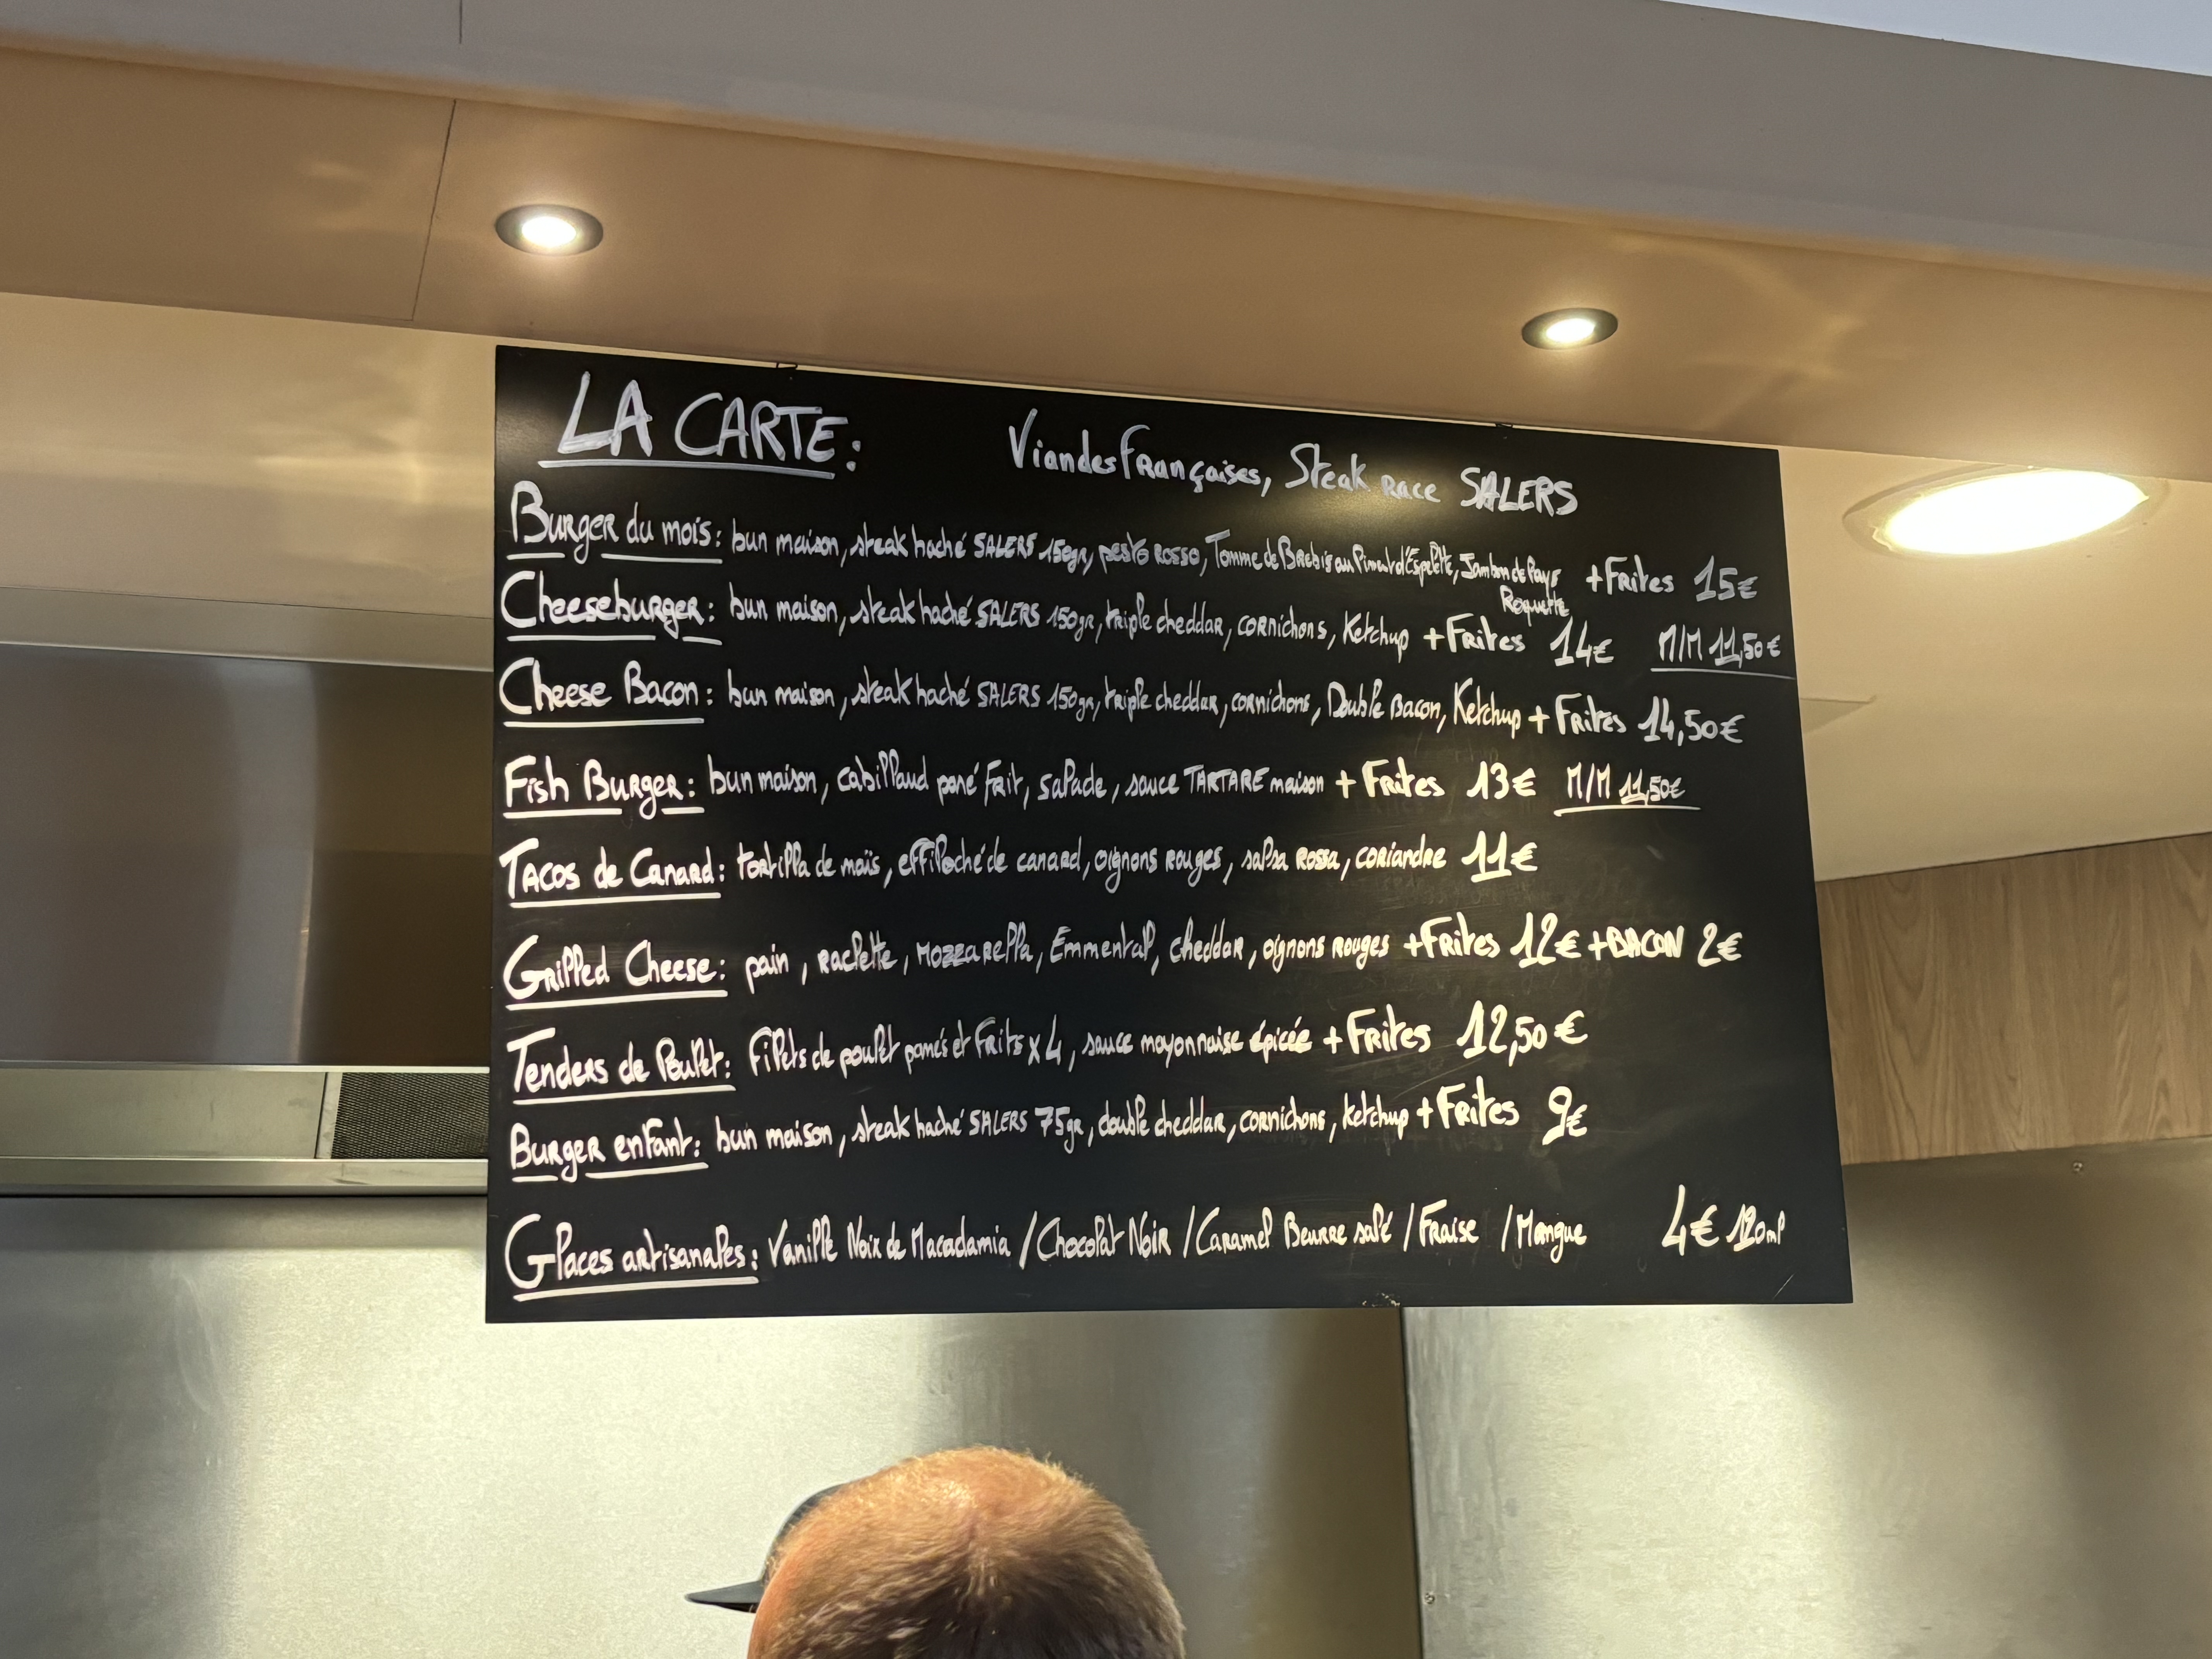 LA CARTE:
Viandes Françaises, Steak race SALERS
Burger du mois: bun maison, steak haché SALERS 150gr, pesto rosso, Tomme de Brebis au Piment d'Espelette, Jambon de Pays Roquette + Frites 15€
Cheeseburger: bun maison, steak haché SALERS 150gr, triple cheddar, cornichons, Ketchup + Frites 14€ M/M 11,50€
Cheese Bacon: bun maison, steak haché SALERS 150gr, triple cheddar, cornichons, Double Bacon, Ketchup + Frites 14,50€
Fish Burger: bun maison, cabillaud pané frit, salade, sauce TARTARE maison + Frites 13€ M/M 11,50€
Tacos de Canard: tortilla de maïs, effiloché de canard, oignons rouges, salsa rossa, coriandre 11€
Grilled Cheese: pain, raclette, mozzarella, Emmental, cheddar, oignons rouges + Frites 12€ + BACON 2€
Tenders de Poulet: Filets de poulet panés et frits x 4, sauce mayonnaise épicée + Frites 12,50€
Burger enfant: bun maison, steak haché SALERS 75gr, double cheddar, cornichons, ketchup + Frites 9€
Glaces artisanales: Vanille Noix de Macadamia / Chocolat Noir / Caramel Beurre salé / Fraise / Mangue 4€ 120ml